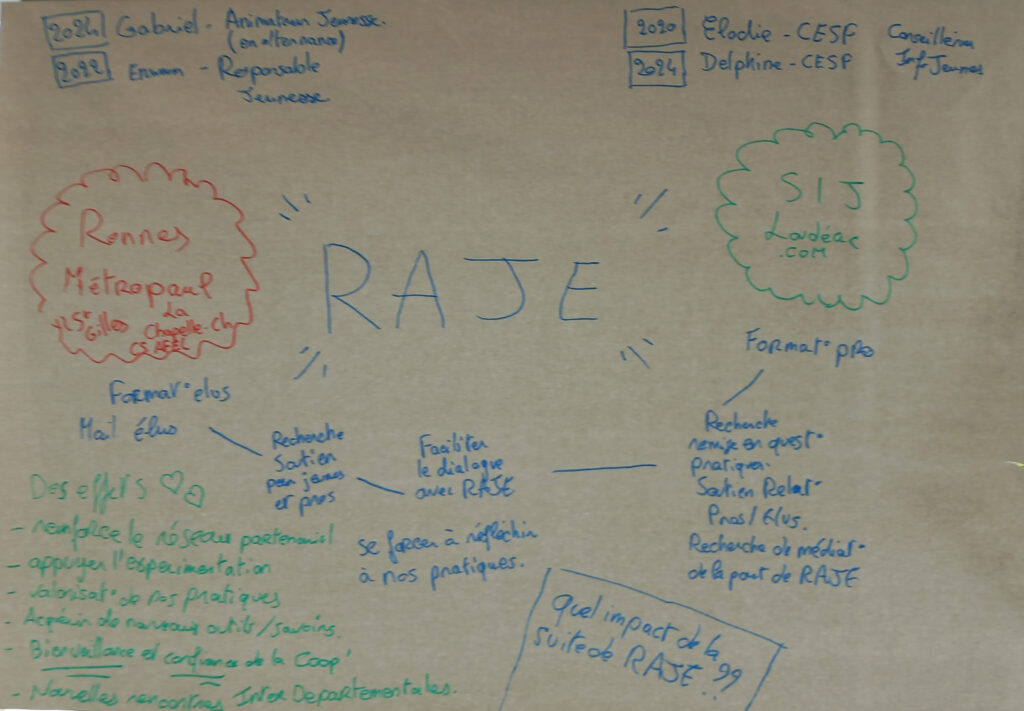 2024 Gabriel - Animateur Jeunesse.
(en alternance)
2022 Erwann - Responsable
Jeunesse
2020 Elodie - CESF Conseillères
2024 Delphine - CESF Inf Jeunes
Rennes
Métropaul
St Gilles
La
Chapelle-Ch
CS
SIJ
Loudéac
.COM
RAJE
Format° elus
Mail élus
Recherche
Soutien
pour jeunes
et pros
Faciliter
le dialogue
avec RAJE
se forcer à réfléchir
à nos pratiques.
Format° pro
Recherche
remise en quest°
pratiques.
Soutien Relat°
Pros/Elus.
Recherche de médiat°
de la part de RAJE
Des effets ♡♡
- renforce le réseau partenarial
- appuyer l'expérimentation
- valorisat° de nos pratiques
- Acquérir de nouveaux outils/savoirs.
- Bienveillance et confiance de la Coop'
- Nouvelles rencontres Inter Departementales.
Quel impact de la
suite de RAJE ??